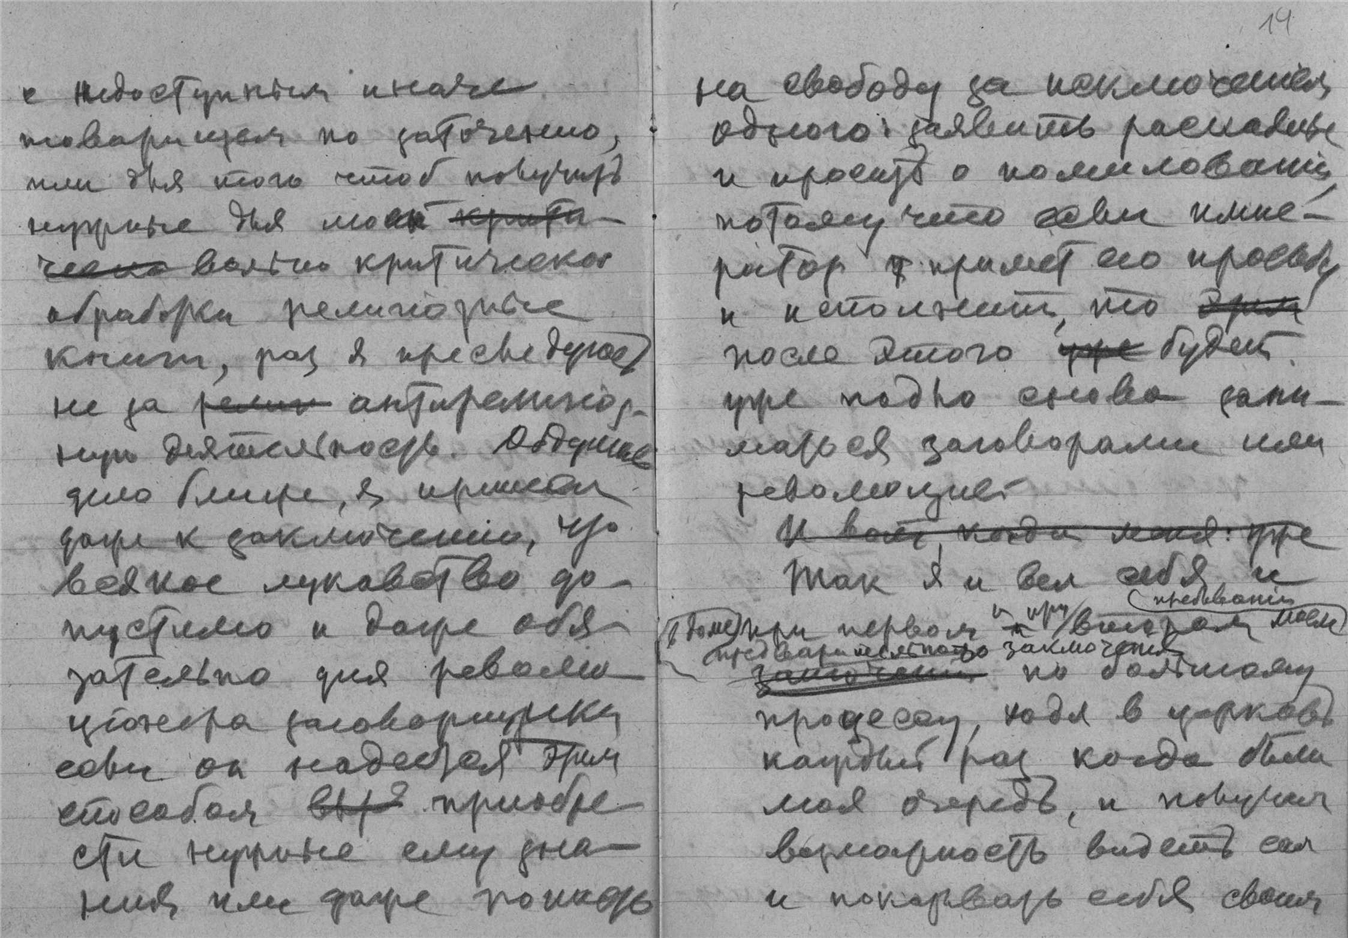 с недоступным иначе
товарищем по заточению,
или для того чтоб получить
нужные для моей крити-
ческо вольно критической
обработки религиозные
книги, раз я преследуюсь
не за религ антирелигиоз-
ную деятельность. Обдумывая
дело ближе, я пришел
даже к заключению, что
всякое лукавство до-
пустимо и даже обя-
зательно для револю-
ционера заговорщика
если он надеется этим
способом приобре-
сти нужные ему зна-
ния или даже попасть
14
на свободу за исключением
одного: заявить раскаяние
и просить о помиловании,
потому что если импе-
ратор примет его просьбу
и исполнит, то этим
после этого уже будет
уже подло снова зани-
маться заговорами или
революцией
И вот, когда меня уже
Так я и вел себя и
пребывании
при первом и при втором моем
предварительного заключения
заточении по большому
процессу, ходя в церковь
каждый раз когда была
моя очередь, и получал
возможность видеть сам
и показывать себя своим